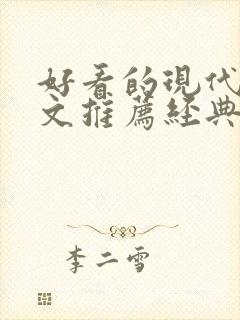 好看的現代
文推薦經典
李二雪